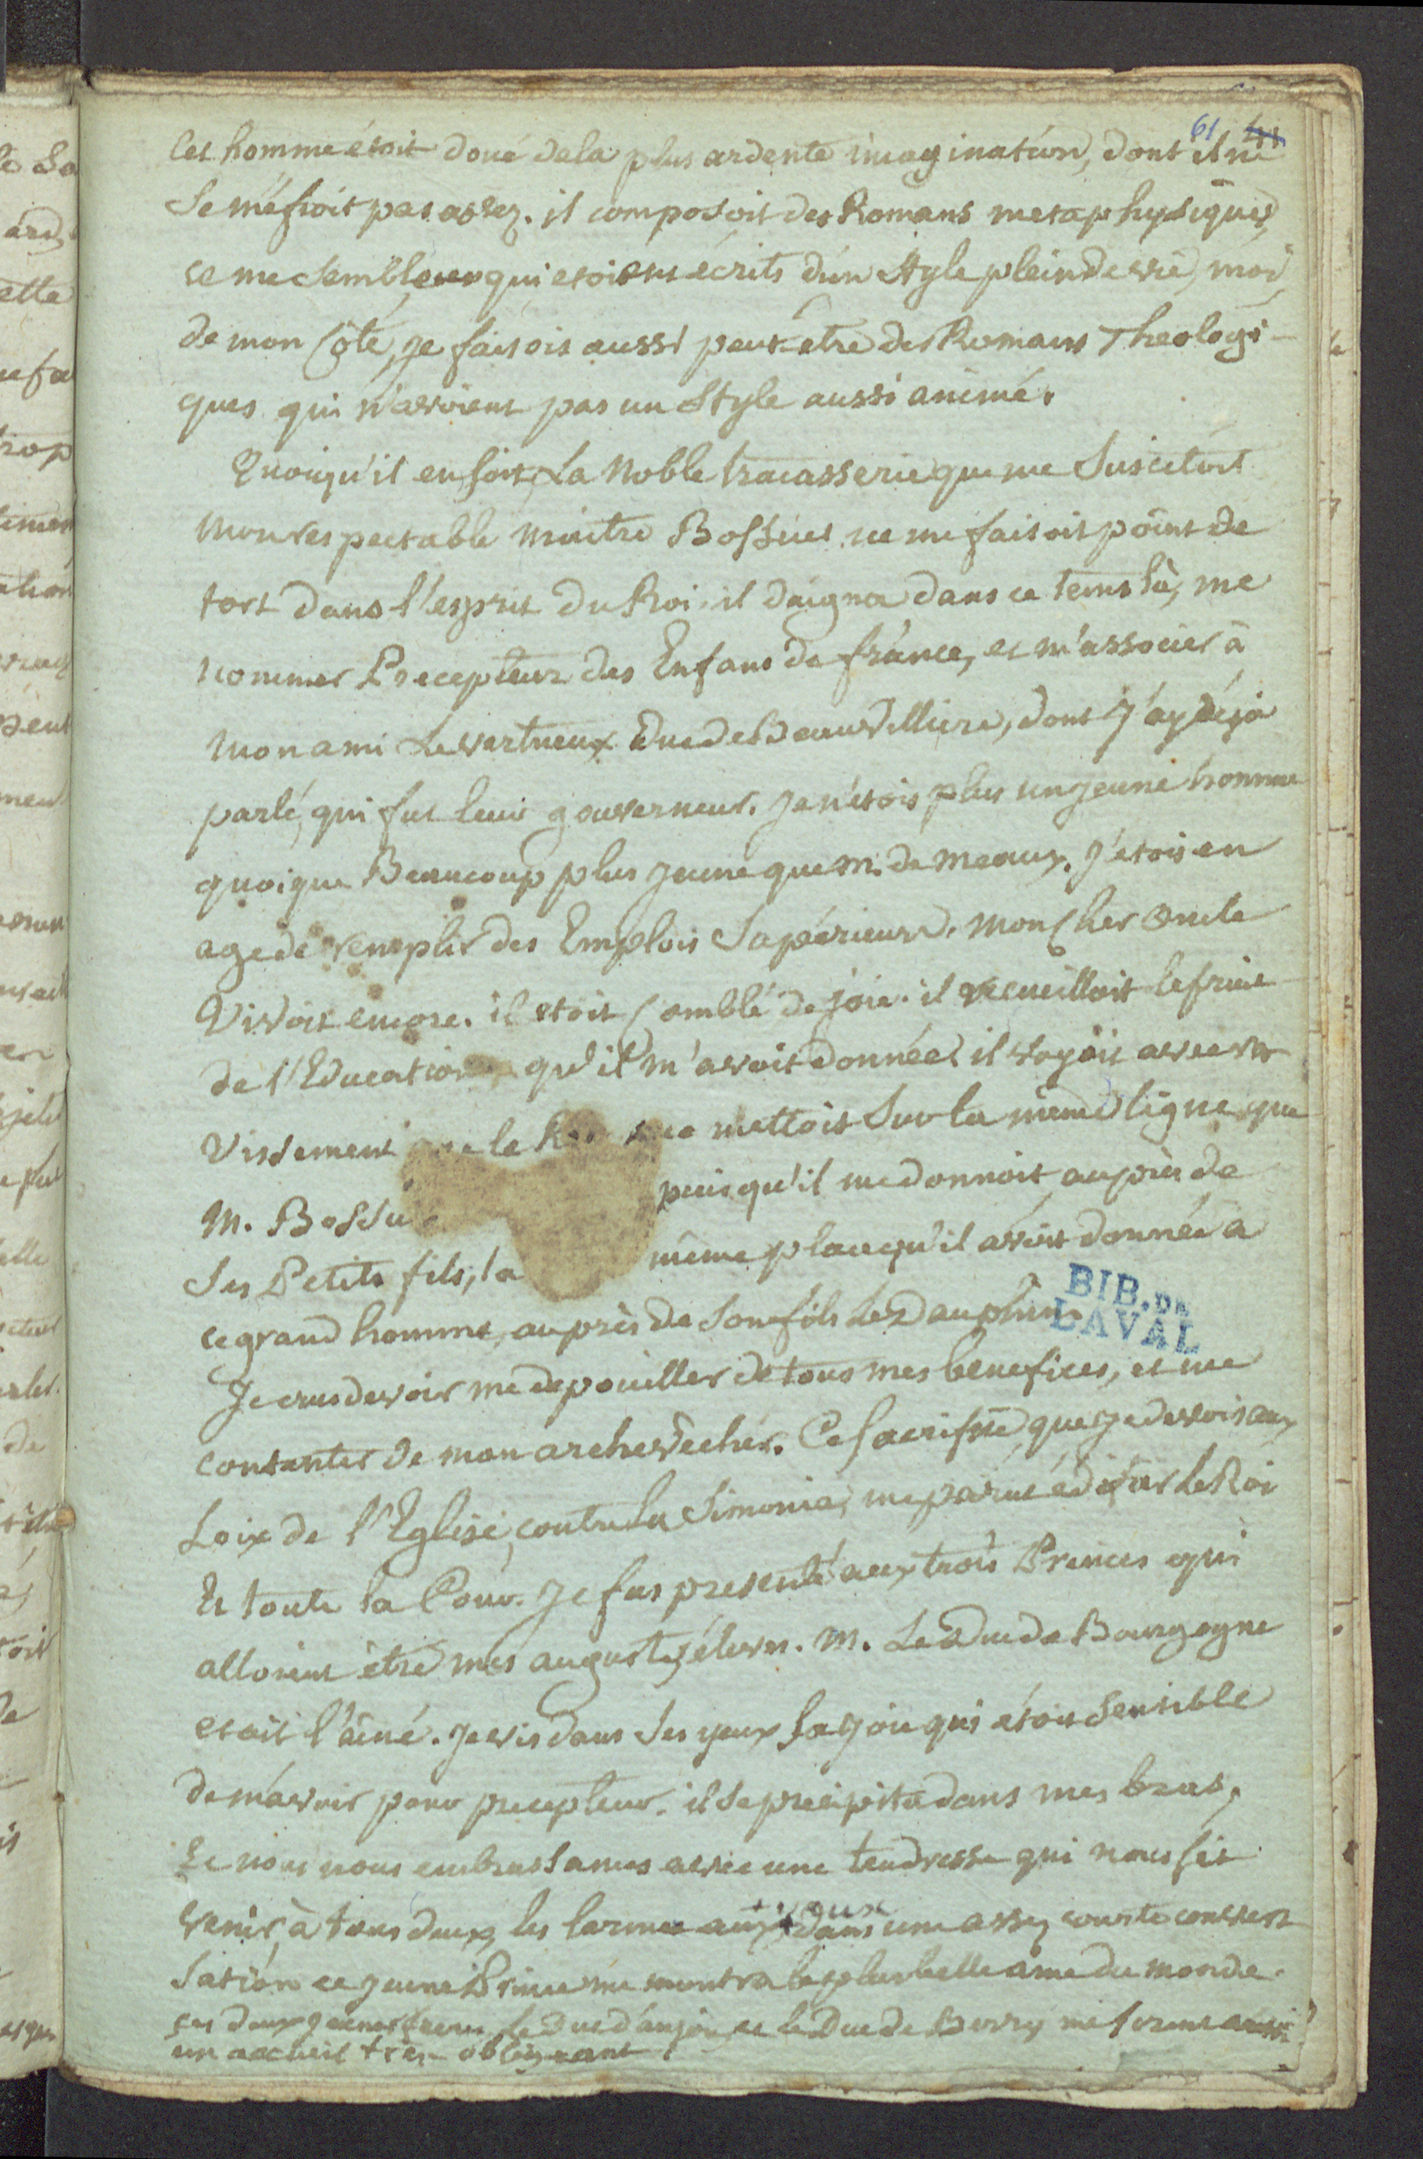 61
Cet homme étoit doué dela plus ardente imagination, dont il ne
se méfioit pas assez. il composoit des Romans metaphysiques,
ce me semble, qui etoient écrits d'un Style plein de vie, moi
de mon Côté, je faisois aussi peut-etre des Romans Theologi-
ques qui n'avoient pas un Style aussi animé.
Quoiqu'il en soit, La Noble tracasserie que me Suscitoit
mon respectable maitre Bossuet ne me faisoit point de
tort dans l'esprit du Roi. il daigna dans ce tems là, me
nommer Precepteur des Enfans de france, et m'associer à
mon ami Le vertueux Duc de Beauvilliers, dont j'ay déja
parlé, qui fut leur gouverneur. je n'etois plus un jeune homme
quoique Beaucoup plus jeune que M. de meaux. J'etois en
age de remplir des Emplois Supérieurs. mon Cher Oncle
Vivoit encore. il etoit Comblé de joie. il recueilloit le fruit
de l'Education qu'il m'avoit donnée. il voyoit avec ra
vissement que le me mettoit Sur la même ligne que
M. Bossu puisqu'il me donnoit auprès de
Ses Petits fils, la même place qu'il avoit donnée à
ce grand homme, auprès de Son fils Le Dauphin.
BIB. DE
LAVAL
Je crus devoir me depouiller de tous mes benefices, et me
contenter de mon archevêché. Ce Sacrifice que je devois aux
Loix de l'Eglise, contre la Simonie, me parut édifier Le Roi
Et toute la Cour. Je fus presenté aux trois Princes qui
alloient être mes augustes éleves. M. Le Duc de Bourgogne
etait l'aîné. je vis dans Ses yeux la joie qui étoit Sensible
de m'avoir pour precepteur. il Se precipita dans mes bras,
Et nous nous embrassames avec une tendresse qui nous fit
venir, à tous deux, les larmes aux yeux dans une assez courte conver
Sation ce jeune Prince me montra la plus belle ame du monde.
Ses deux jeunes freres Le Duc d'anjou et le Duc de Berry me firent aussi
un accueil tres obligeant